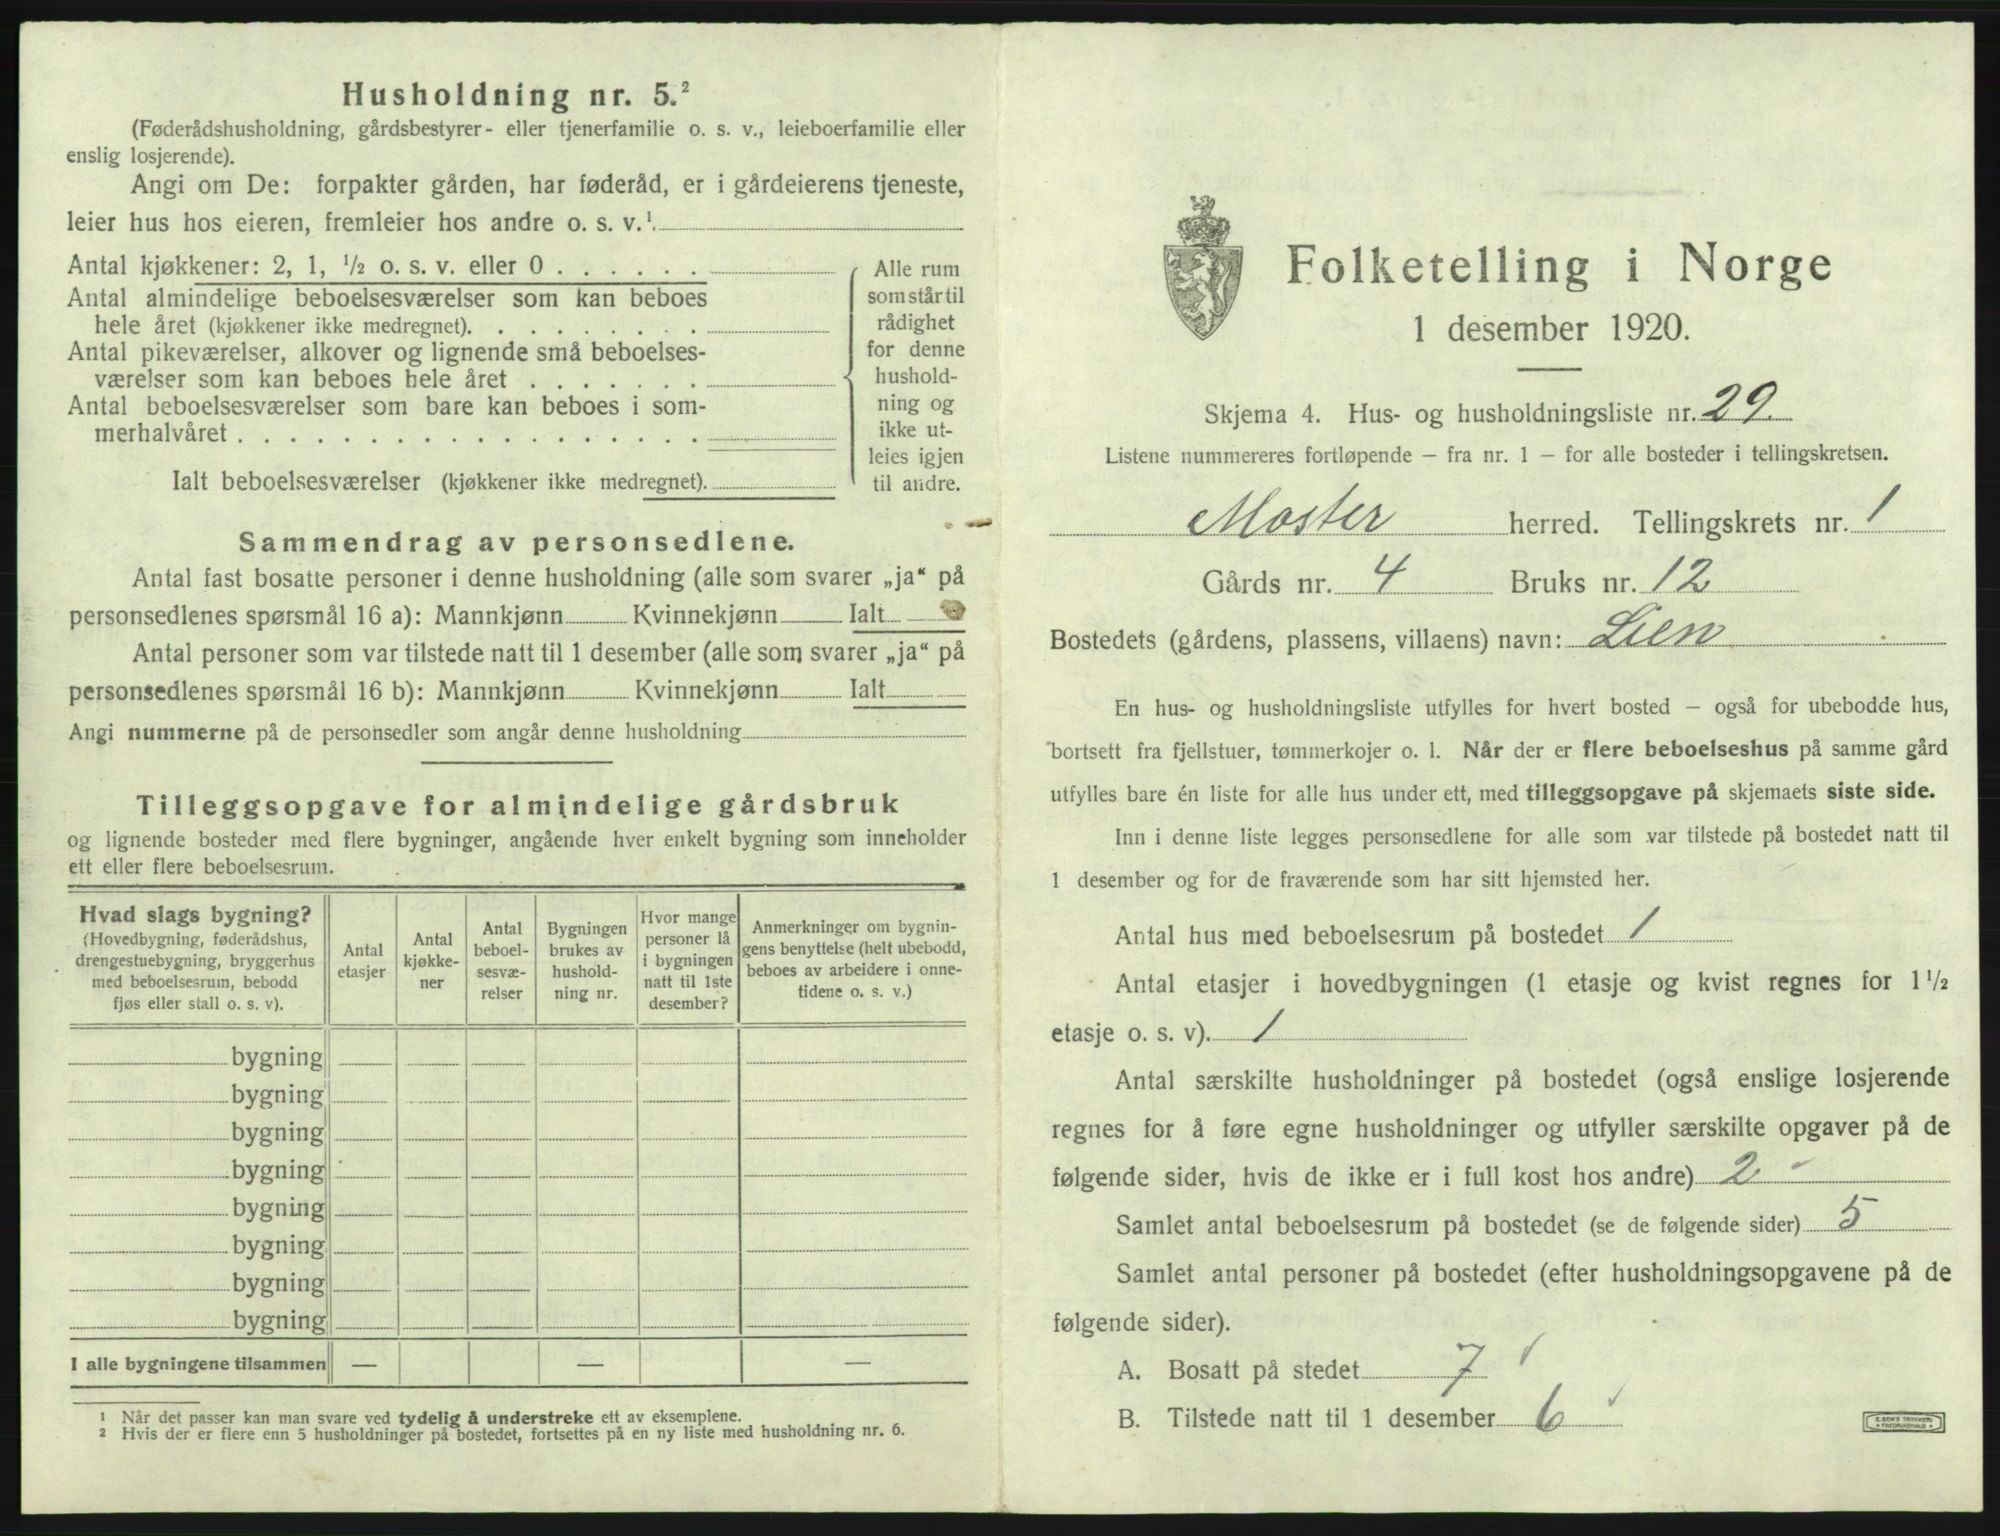 Husholdning nr. 5.²
(Føderådshusholdning, gårdsbestyrer- eller tjenerfamilie o. s. v., leieboerfamilie eller
enslig losjerende).
Angi om De: forpakter gården, har føderåd, er i gårdeierens tjeneste,
leier hus hos eieren, fremleier hos andre o. s. v.¹
Antal kjøkkener: 2, 1, ½ o. s. v. eller 0 . . . . . .
Antal almindelige beboelsesværelser som kan beboes
hele året (kjøkkener ikke medregnet). . . . . . . . .
Antal pikeværelser, alkover og lignende små beboelses-
værelser som kan beboes hele året . . . . . . .
Antal beboelsesværelser som bare kan beboes i som-
merhalvåret . . . . . . . . . . . . . . . . . .
Ialt beboelsesværelser (kjøkkener ikke medregnet).
Alle rum
som står til
rådighet
for denne
hushold-
ning og
ikke ut-
leies igjen
til andre.
Sammendrag av personsedlene.
Antal fast bosatte personer i denne husholdning (alle som svarer „ja“ på
personsedlenes spørsmål 16 a): Mannkjønn Kvinnekjønn Ialt
Antal personer som var tilstede natt til 1 desember (alle som svarer „ja“ på
personsedlenes spørsmål 16 b): Mannkjønn Kvinnekjønn Ialt
Angi nummerne på de personsedler som angår denne husholdning
Tilleggsopgave for almindelige gårdsbruk
og lignende bosteder med flere bygninger, angående hver enkelt bygning som inneholder
ett eller flere beboelsesrum.
Hvad slags bygning?
(Hovedbygning, føderådshus,
drengestuebygning, bryggerhus
med beboelsesrum, bebodd
fjøs eller stall o. s. v).
Antal
etasjer
Antal
kjøkke-
ner
Antal
beboel-
sesvæ-
relser
Bygningen
brukes av
hushold-
ning nr.
Hvor mange
personer lå
i bygningen
natt til 1ste
desember?
Anmerkninger om bygnin-
gens benyttelse (helt ubebodd,
beboes av arbeidere i onne-
tidene o. s. v.)
bygning
bygning
bygning
bygning
bygning
bygning
bygning
bygning
I alle bygningene tilsammen — — —
¹ Når det passer kan man svare ved tydelig å understreke ett av eksemplene.
² Hvis der er flere enn 5 husholdninger på bostedet, fortsettes på en ny liste med husholdning nr. 6.
Folketelling i Norge
1 desember 1920.
Skjema 4. Hus- og husholdningsliste nr. 29.
Listene nummereres fortløpende — fra nr. 1 — for alle bosteder i tellingskretsen.
Moster herred. Tellingskrets nr. 1
Gårds nr. 4 Bruks nr. 12
Bostedets (gårdens, plassens, villaens) navn: Lien
En hus- og husholdningsliste utfylles for hvert bosted — også for ubebodde hus,
bortsett fra fjellstuer, tømmerkojer o. l. Når der er flere beboelseshus på samme gård
utfylles bare én liste for alle hus under ett, med tilleggsopgave på skjemaets siste side.
Inn i denne liste legges personsedlene for alle som var tilstede på bostedet natt til
1 desember og for de fraværende som har sitt hjemsted her.
Antal hus med beboelsesrum på bostedet 1
Antal etasjer i hovedbygningen (1 etasje og kvist regnes for 1½
etasje o. s. v). 1
Antal særskilte husholdninger på bostedet (også enslige losjerende
regnes for å føre egne husholdninger og utfyller særskilte opgaver på de
følgende sider, hvis de ikke er i full kost hos andre) 2
Samlet antal beboelsesrum på bostedet (se de følgende sider) 5
Samlet antal personer på bostedet (efter husholdningsopgavene på de
følgende sider).
A. Bosatt på stedet 7
B. Tilstede natt til 1 desember 6